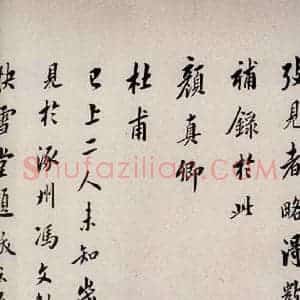 見者略得數
補錄於此
顏真卿
杜甫
已上二人未知
見於涿州馮文
快雪堂題跋
Shufaziliao.COM